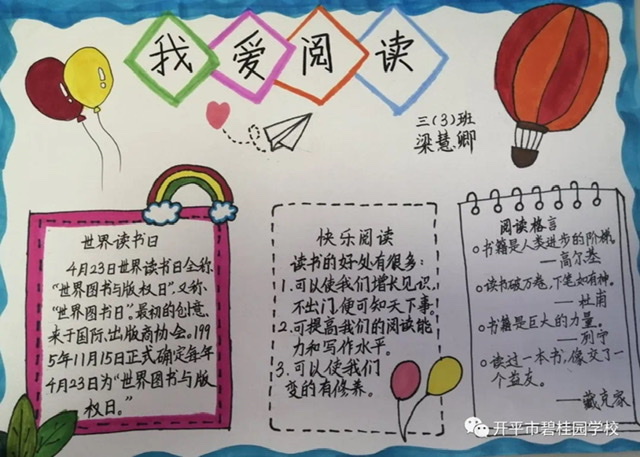 我爱阅读
三(3)班
梁慧卿
世界读书日
4月23日世界读书日全称
“世界图书与版权日”,又称
“世界图书日”。最初的创意,
来于国际,出版商协会。199
5年11月15日正式确定每年
4月23日为“世界图书与版
权日。”
快乐阅读
读书的好处有很多:
1.可以使我们增长见识,
不出门,便可知天下事!
2.可提高我们的阅读能
力和写作水平。
3.可以使我们
变的有修养。
阅读格言
书籍是人类进步的阶梯。
——高尔基
读书破万卷,下笔如有神。
——杜甫
书籍是巨大的力量。
——列宁
读过一本书,像交了一
个益友。
——臧克家
开平市碧桂园学校